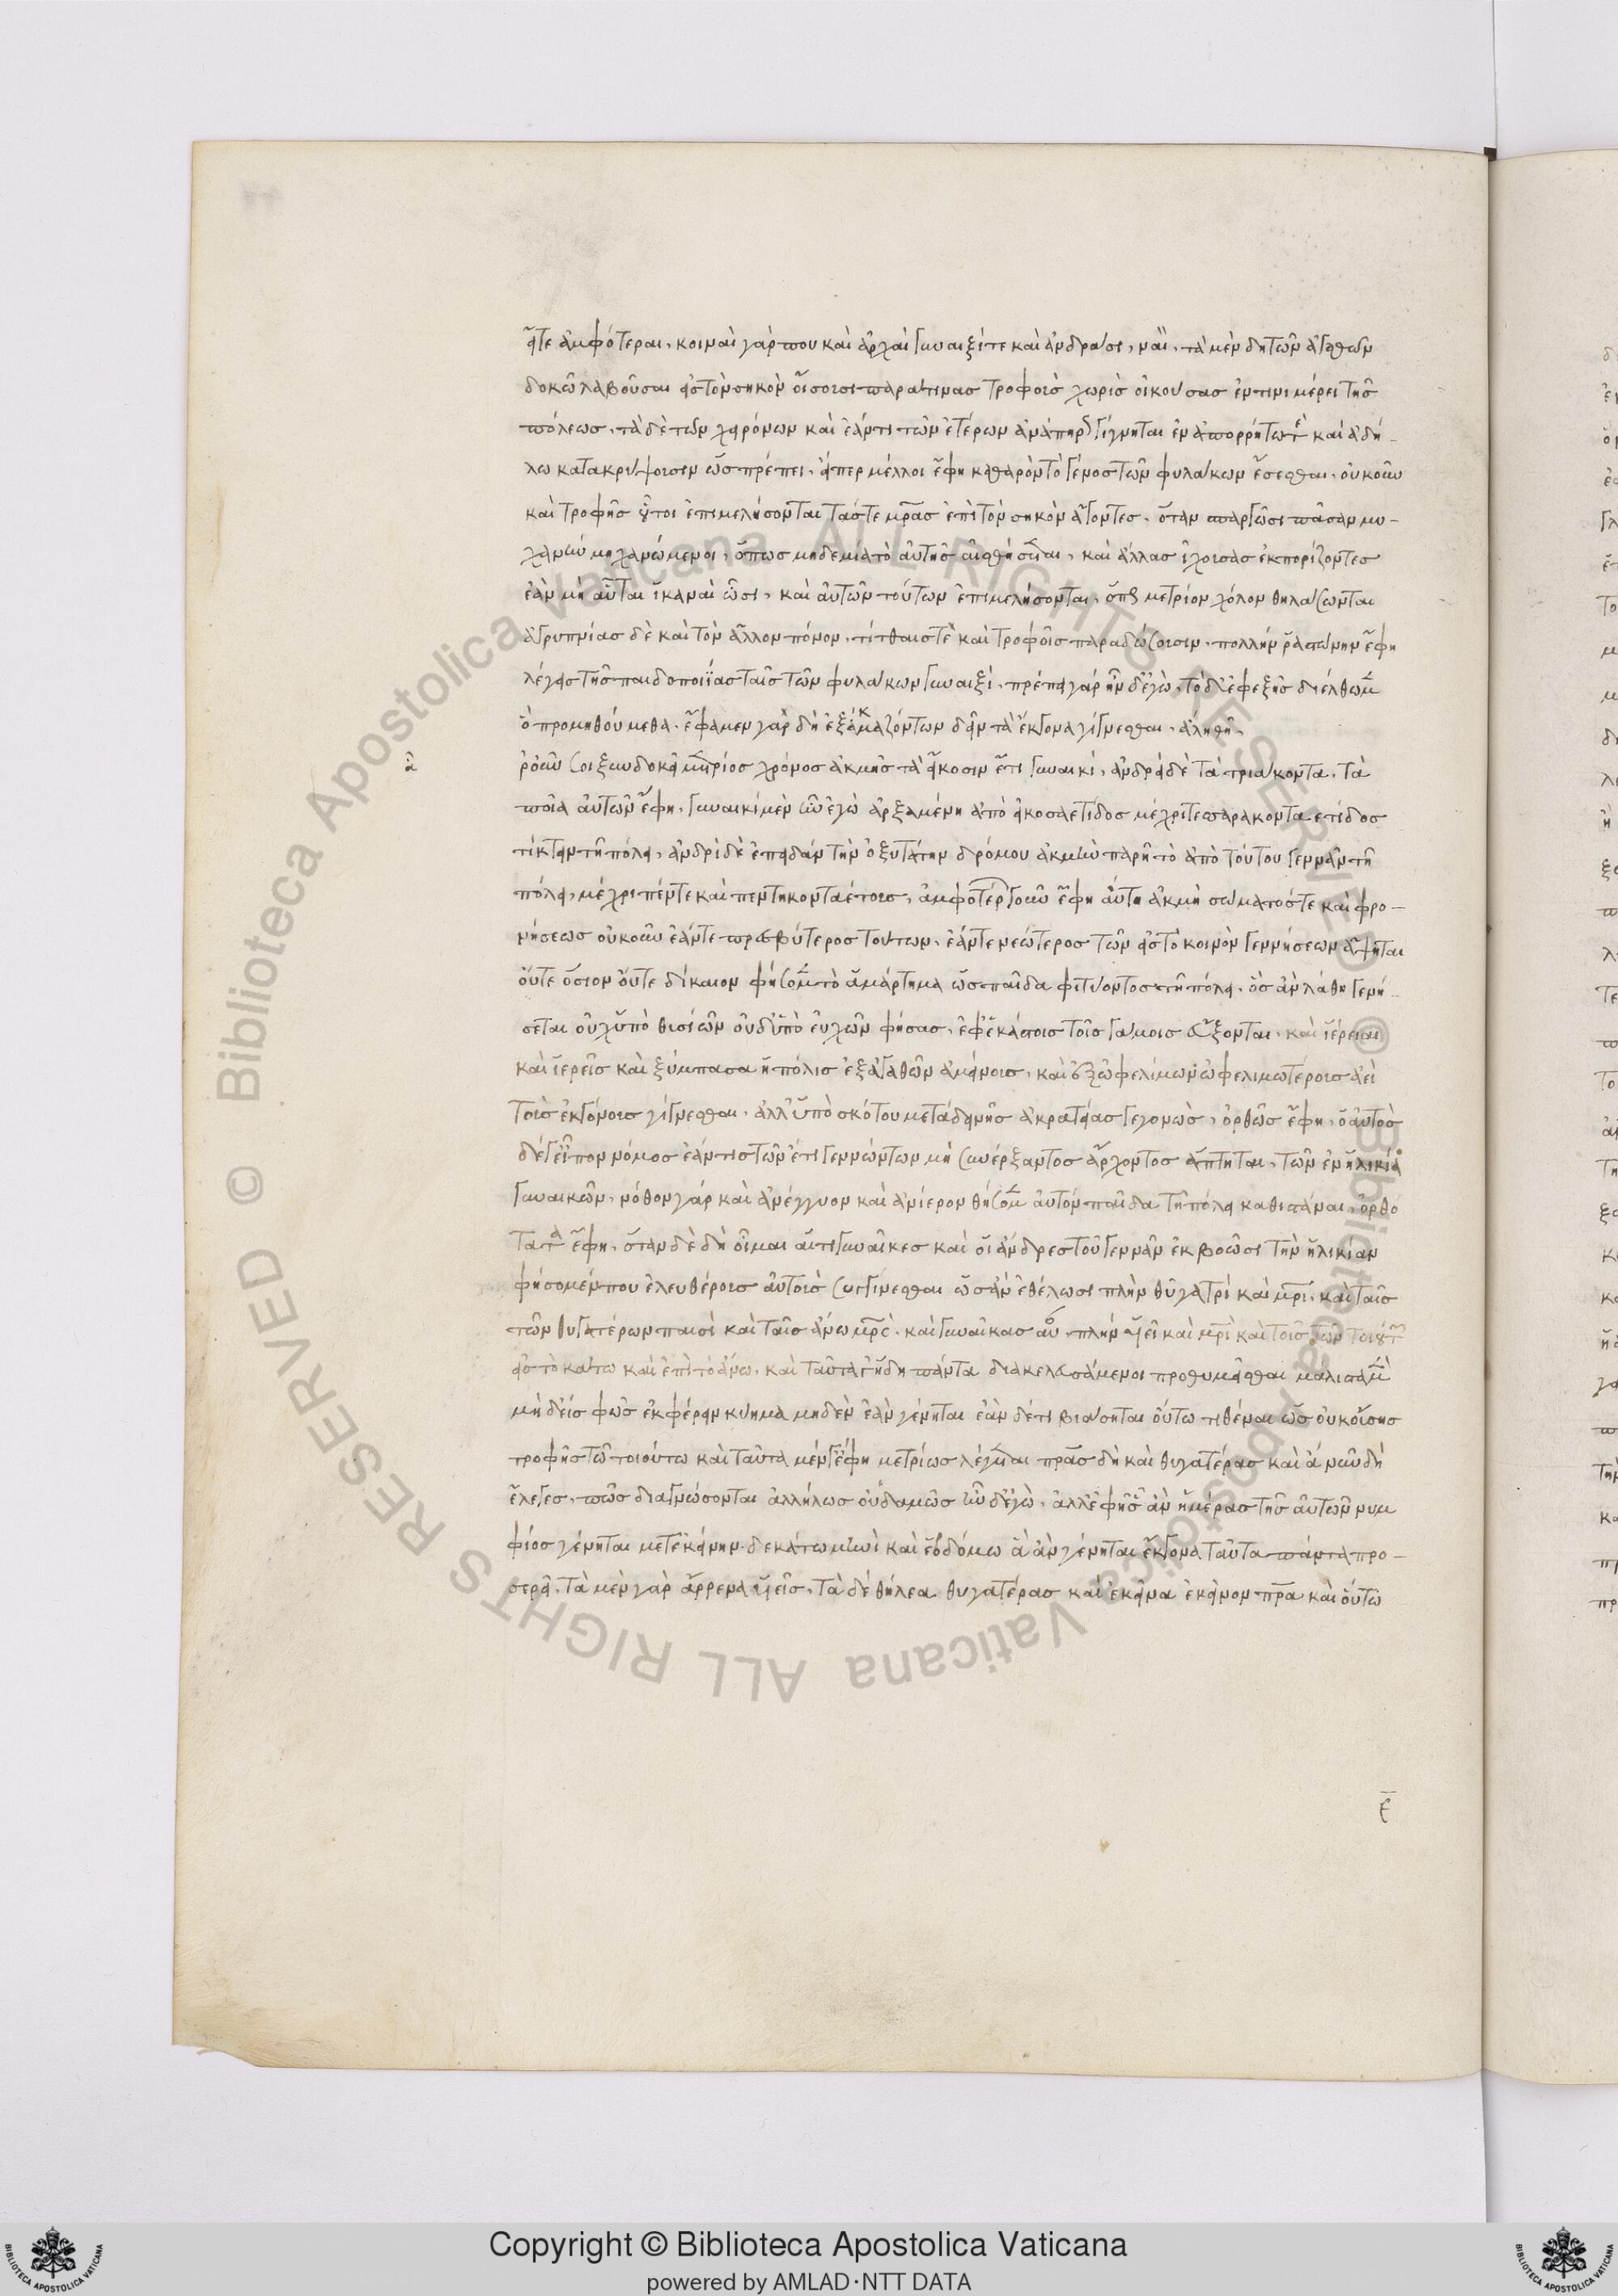 εἴτε ἀμφότεραι· κοιναὶ γάρ που καὶ ἀρχαὶ γυναιξί τε καὶ ἀνδράσι, ναί, τὰ μὲν δὴ τῶν ἀγαθῶν
δοκῶ λαβοῦσαι εἰς τὸν σηκὸν οἴσουσι παρά τινας τροφοὺς χωρὶς οἰκούσας ἔν τινι μέρει τῆς
πόλεως. τὰ δὲ τῶν χειρόνων καὶ ἐάν τι τῶν ἑτέρων ἀνάπηρον γίγνηται ἐν ἀπορρήτω τε καὶ ἀδή-
λω κατακρύψουσιν ὡς πρέπει. εἴπερ μέλλοι ἔφη καθαρὸν τὸ γένος τῶν φυλάκων ἔσεσθαι. οὐκοῦν
καὶ τροφῆς οὗτοι ἐπιμελήσονται τάς τε μρας ἐπὶ τὸν σηκὸν ἄγοντες. ὅταν σπαργῶσι πᾶσαν μη-
χανὴν μηχανώμενοι, ὅπως μηδεμία τὸ αὑτῆς αἰσθήσεται, καὶ ἄλλας ἐχούσας ἐκπορίζοντες
ἐὰν μὴ αὗται ἱκαναὶ ὦσι, καὶ αὐτῶν τούτων ἐπιμελήσονται, ὅπως μέτριον χόνον θηλάσωνται
ἀγρυπνίας δὲ καὶ τὸν ἄλλον πόνον, τίτθαις τε καὶ τροφοῖς παραδώσουσιν, πολλὴν ῥαστώνην ἔφη
λέγεις τῆς παιδοποιΐας ταῖς τῶν φυλάκων γυναιξί, πρέπει γάρ ἦν δ' ἐγὼ, τὸ δ' ἐφεξῆς διέλθωμεν
ὃ προμηθούμεθα. ἔφαμεν γὰρ δὴ ἐξ ἀκμαζόντων δεῖν τὰ ἔκγονα γίγνεσθαι, ἀληθῆ.
ἆρ' οὖν σοι ξυνδοκεῖ μέτριος χρόνος ἀκμῆς τὰ εἴκοσιν ἔτη γυναικί, ἀνδρὶ δὲ τὰ τριάκοντα. τὰ
ποῖα αὐτῶν ἔφη. γυναικὶ μὲν ἦν ἐγὼ ἀρξαμένη ἀπὸ εἰκοσαέτιδος μέχρι τεσσαρακονταέτιδος
τίκτειν τῆ πόλει, ἀνδρὶ δὲ ἐπειδὰν τὴν ὀξυτάτην δρόμου ἀκμὴν παρῆ τὸ ἀπὸ τούτου γεννᾶν τῆ
πόλει, μέχρι πέντε καὶ πεντηκονταέτους, ἀμφοτέρων γοῦν ἔφη αὕτη ἀκμὴ σώματός τε καὶ φρο-
νήσεως οὐκοῦν ἐάν τε πρεσβύτερος τούτων, ἐάν τε νεώτερος τῶν εἰς τὸ κοινὸν γεννήσεων ἅψηται
οὔτε ὅσιον οὔτε δίκαιον φήσομεν τὸ ἁμάρτημα ὡς παῖδα φιτύοντος τῆ πόλει, ὃς ἂν λάθη γενή-
σεται οὐχ ὑπὸ θυσιῶν οὐδ' ὑπὸ εὐχῶν φύσας, ἃς ἐφ' ἑκάστοις τοῖς γάμοις εὔξονται, καὶ ἱέρειαι
καὶ ἱερεῖς καὶ ξύμπασα ἡ πόλις ἐξ ἀγαθῶν ἀμείνους, καὶ ἐξ ὠφελίμων ὠφελιμωτέρους ἀεὶ
τοὺς ἐκγόνους γίγνεσθαι, ἀλλ' ὑπὸ σκότου μετὰ δεινῆς ἀκρατείας γεγονὼς, ὀρθῶς ἔφη, ὁ αὐτὸς
δέ γ' εἶπον νόμος ἐάν τις τῶν ἔτι γεννώντων μὴ συνέρξαντος ἄρχοντος ἅπτηται, τῶν ἐν ἡλικία
γυναικῶν, νόθον γάρ καὶ ἀνέγγυον καὶ ἀνίερον θήσομεν αὐτὸν παῖδα τῆ πόλει καθιστάναι, ὀρθό
τατα ἔφη, ὅταν δὲ δὴ οἶμαι αἵ τε γυναῖκες καὶ οἱ ἄνδρες τοῦ γεννᾶν ἐκβῶσι τὴν ἡλικίαν
φήσομέν που ἐλευθέρους αὐτοὺς συγγίνεσθαι ὡς ἂν ἐθέλωσι πλὴν θυγατρὶ καὶ μρι, καὶ ταῖς
τῶν θυγατέρων παισὶ καὶ ταῖς ἄνω μρς, καὶ γυναῖκας αὖ πλὴν υἱεῖ καὶ πρι καὶ τοῖς τῶν τούτων
εἰς τὸ κάτω καὶ ἐπὶ τὸ ἄνω, καὶ ταῦτα γ' ἤδη πάντα διακελευσάμενοι προθυμεῖσθαι μάλιστα μὲν
μὴ δ' εἰς φῶς ἐκφέρειν κύημα μηδὲν ἐὰν γένηται ἐὰν δέ τι βιάσηται οὕτω τιθέναι ὡς οὐκ οὔσης
τροφῆς τῶ τοιούτω καὶ ταῦτα μέν γ' ἔφη μετρίως λέγεται πρας δὴ καὶ θυγατέρας καὶ ἃ νῦν δὴ
ἔλεγες, πῶς διαγνώσονται ἀλλήλων οὐδαμῶς ἦν δ' ἐγὼ, ἀλλ' ἀφ' ἧς ἂν ἡμέρας τὶς αὐτῶν νυμ
φίος γένηται μετ' ἐκείνην δεκάτω μηνὶ καὶ ἑβδόμω ἃ ἂν γένηται ἔκγονα ταῦτα πάντα προ-
σερεῖ, τὰ μὲν γὰρ ἄρρενα υἱεῖς, τὰ δὲ θήλεα θυγατέρας καὶ ἐκεῖνα ἐκεῖνον πρα καὶ οὕτω
ε
Copyright © Biblioteca Apostolica Vaticana
powered by AMLAD·NTT DATA